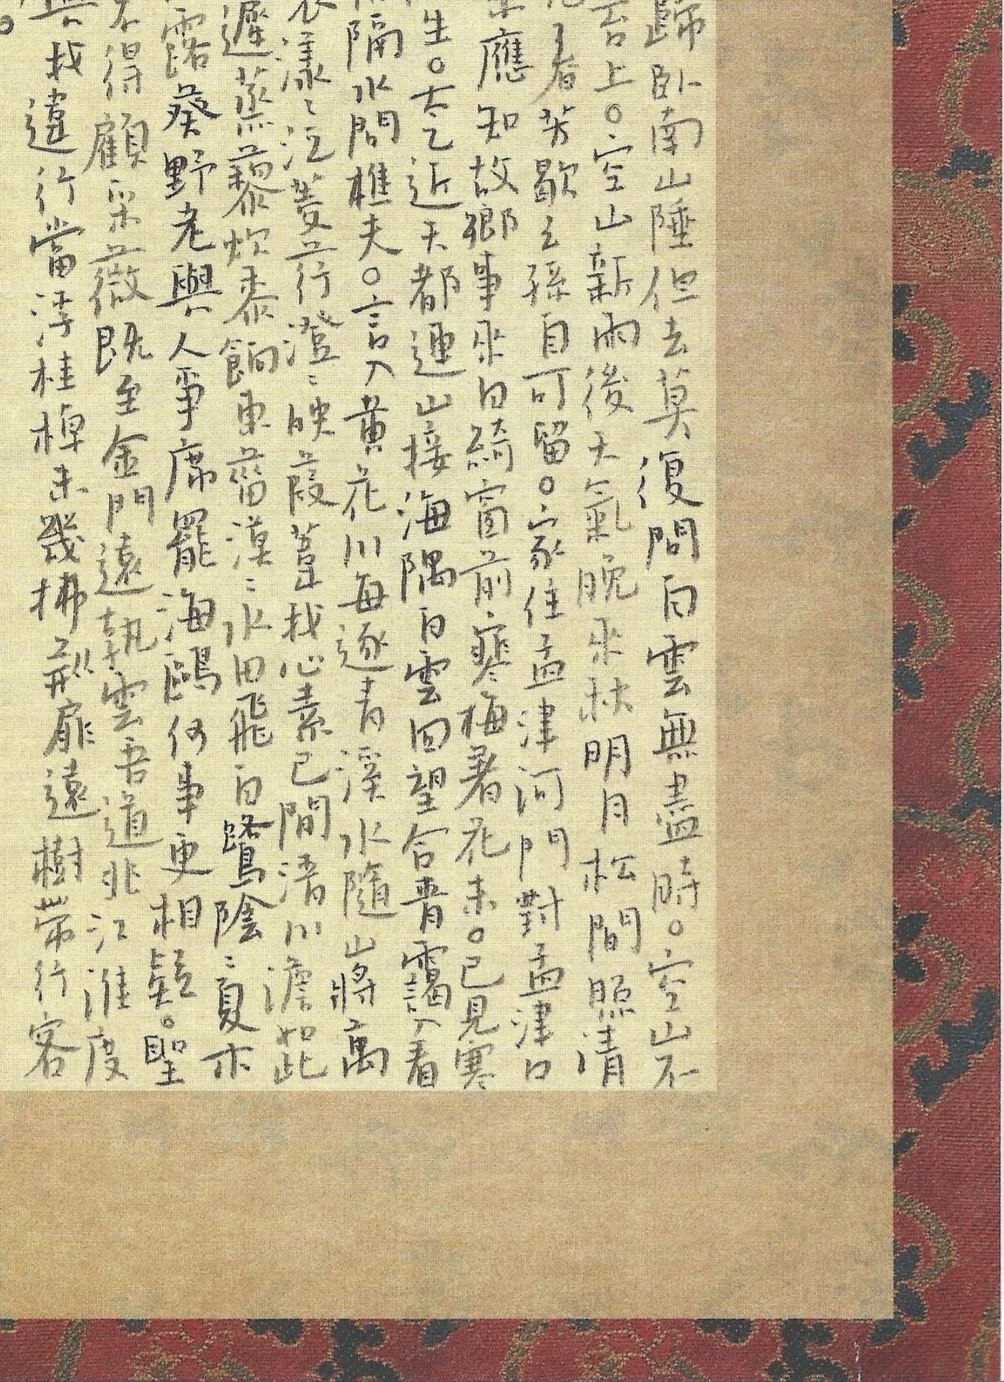 歸臥南山陲但去莫復問白雲無盡時。空山不
苔上。空山新雨後天氣晚來秋明月松間照清
看芳歇王孫自可留。家住孟津河門對孟津口
應知故鄉事來日綺窗前寒梅著花未。已見寒
生。太乙近天都連山接海隅白雲回望合青靄入看
隔水問樵夫。言入黃花川每逐青溪水隨山將萬
漾漾汎菱荇澄澄映葭葦我心素已閒清川澹如此
遲蒸藜炊黍餉東菑漠漠水田飛白鷺陰陰夏木
露葵野老與人爭席罷海鷗何事更相疑。聖
不得顧采薇既至金門遠孰云吾道非江淮度
與我違行當浮桂棹未幾拂荊扉遠樹帶行客